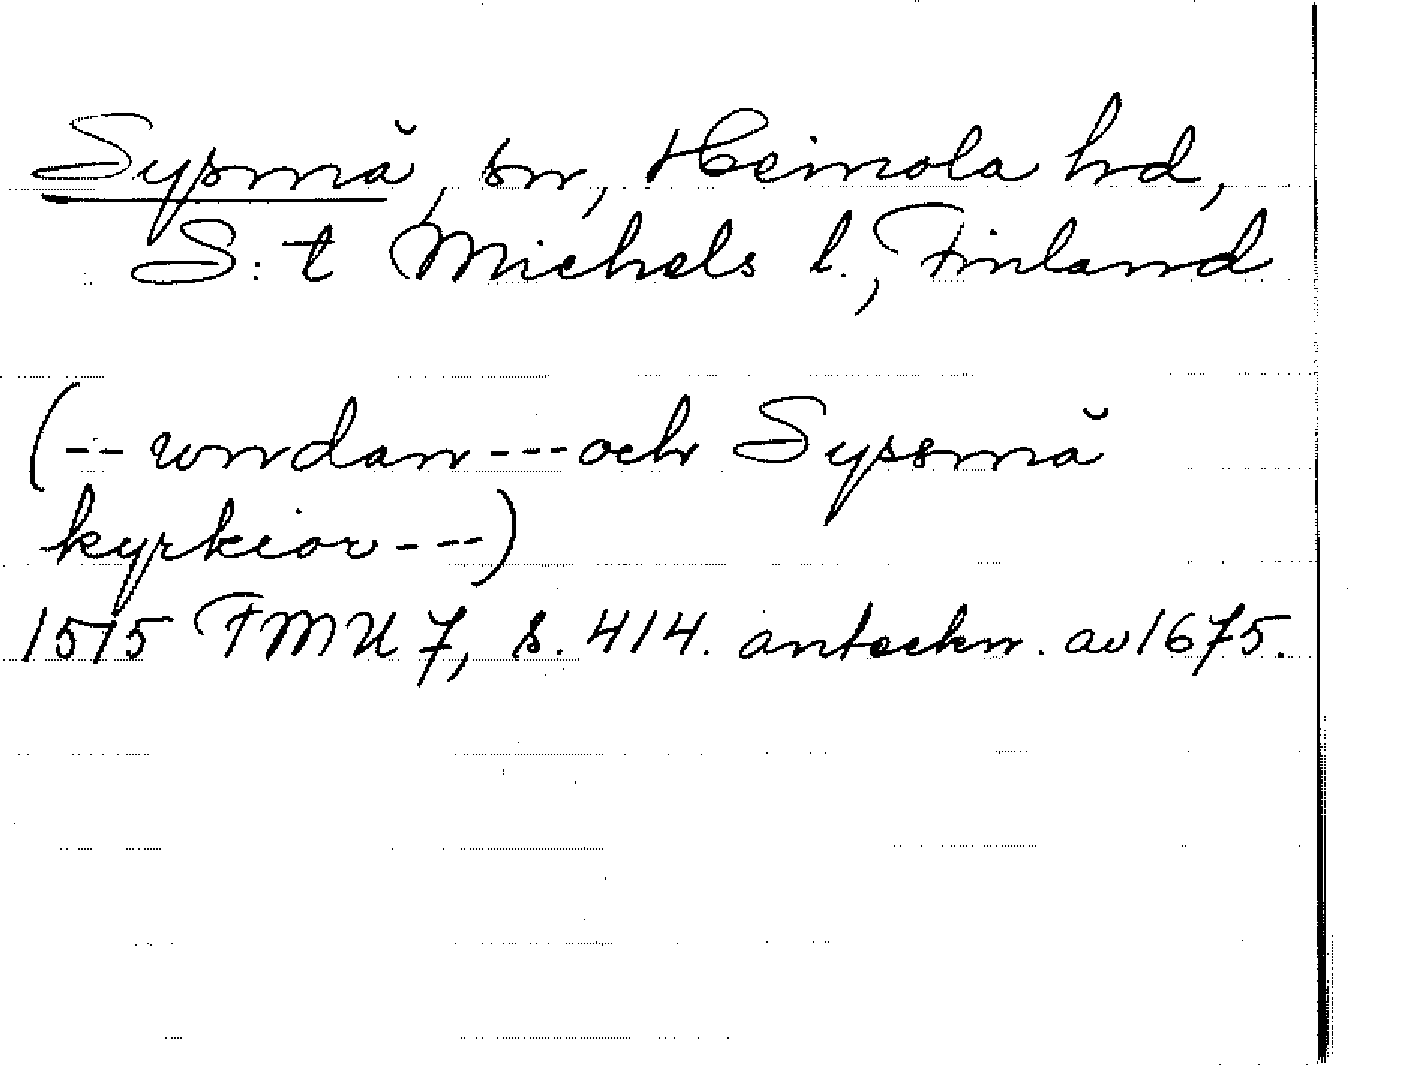 Sysmä, sn, Heinola hd,
S:t Michels l., Finland
(-- wndan --- och Syssmä
kyrkior ---)
1575 FMU 7, s. 414. anteckn. av 1675.